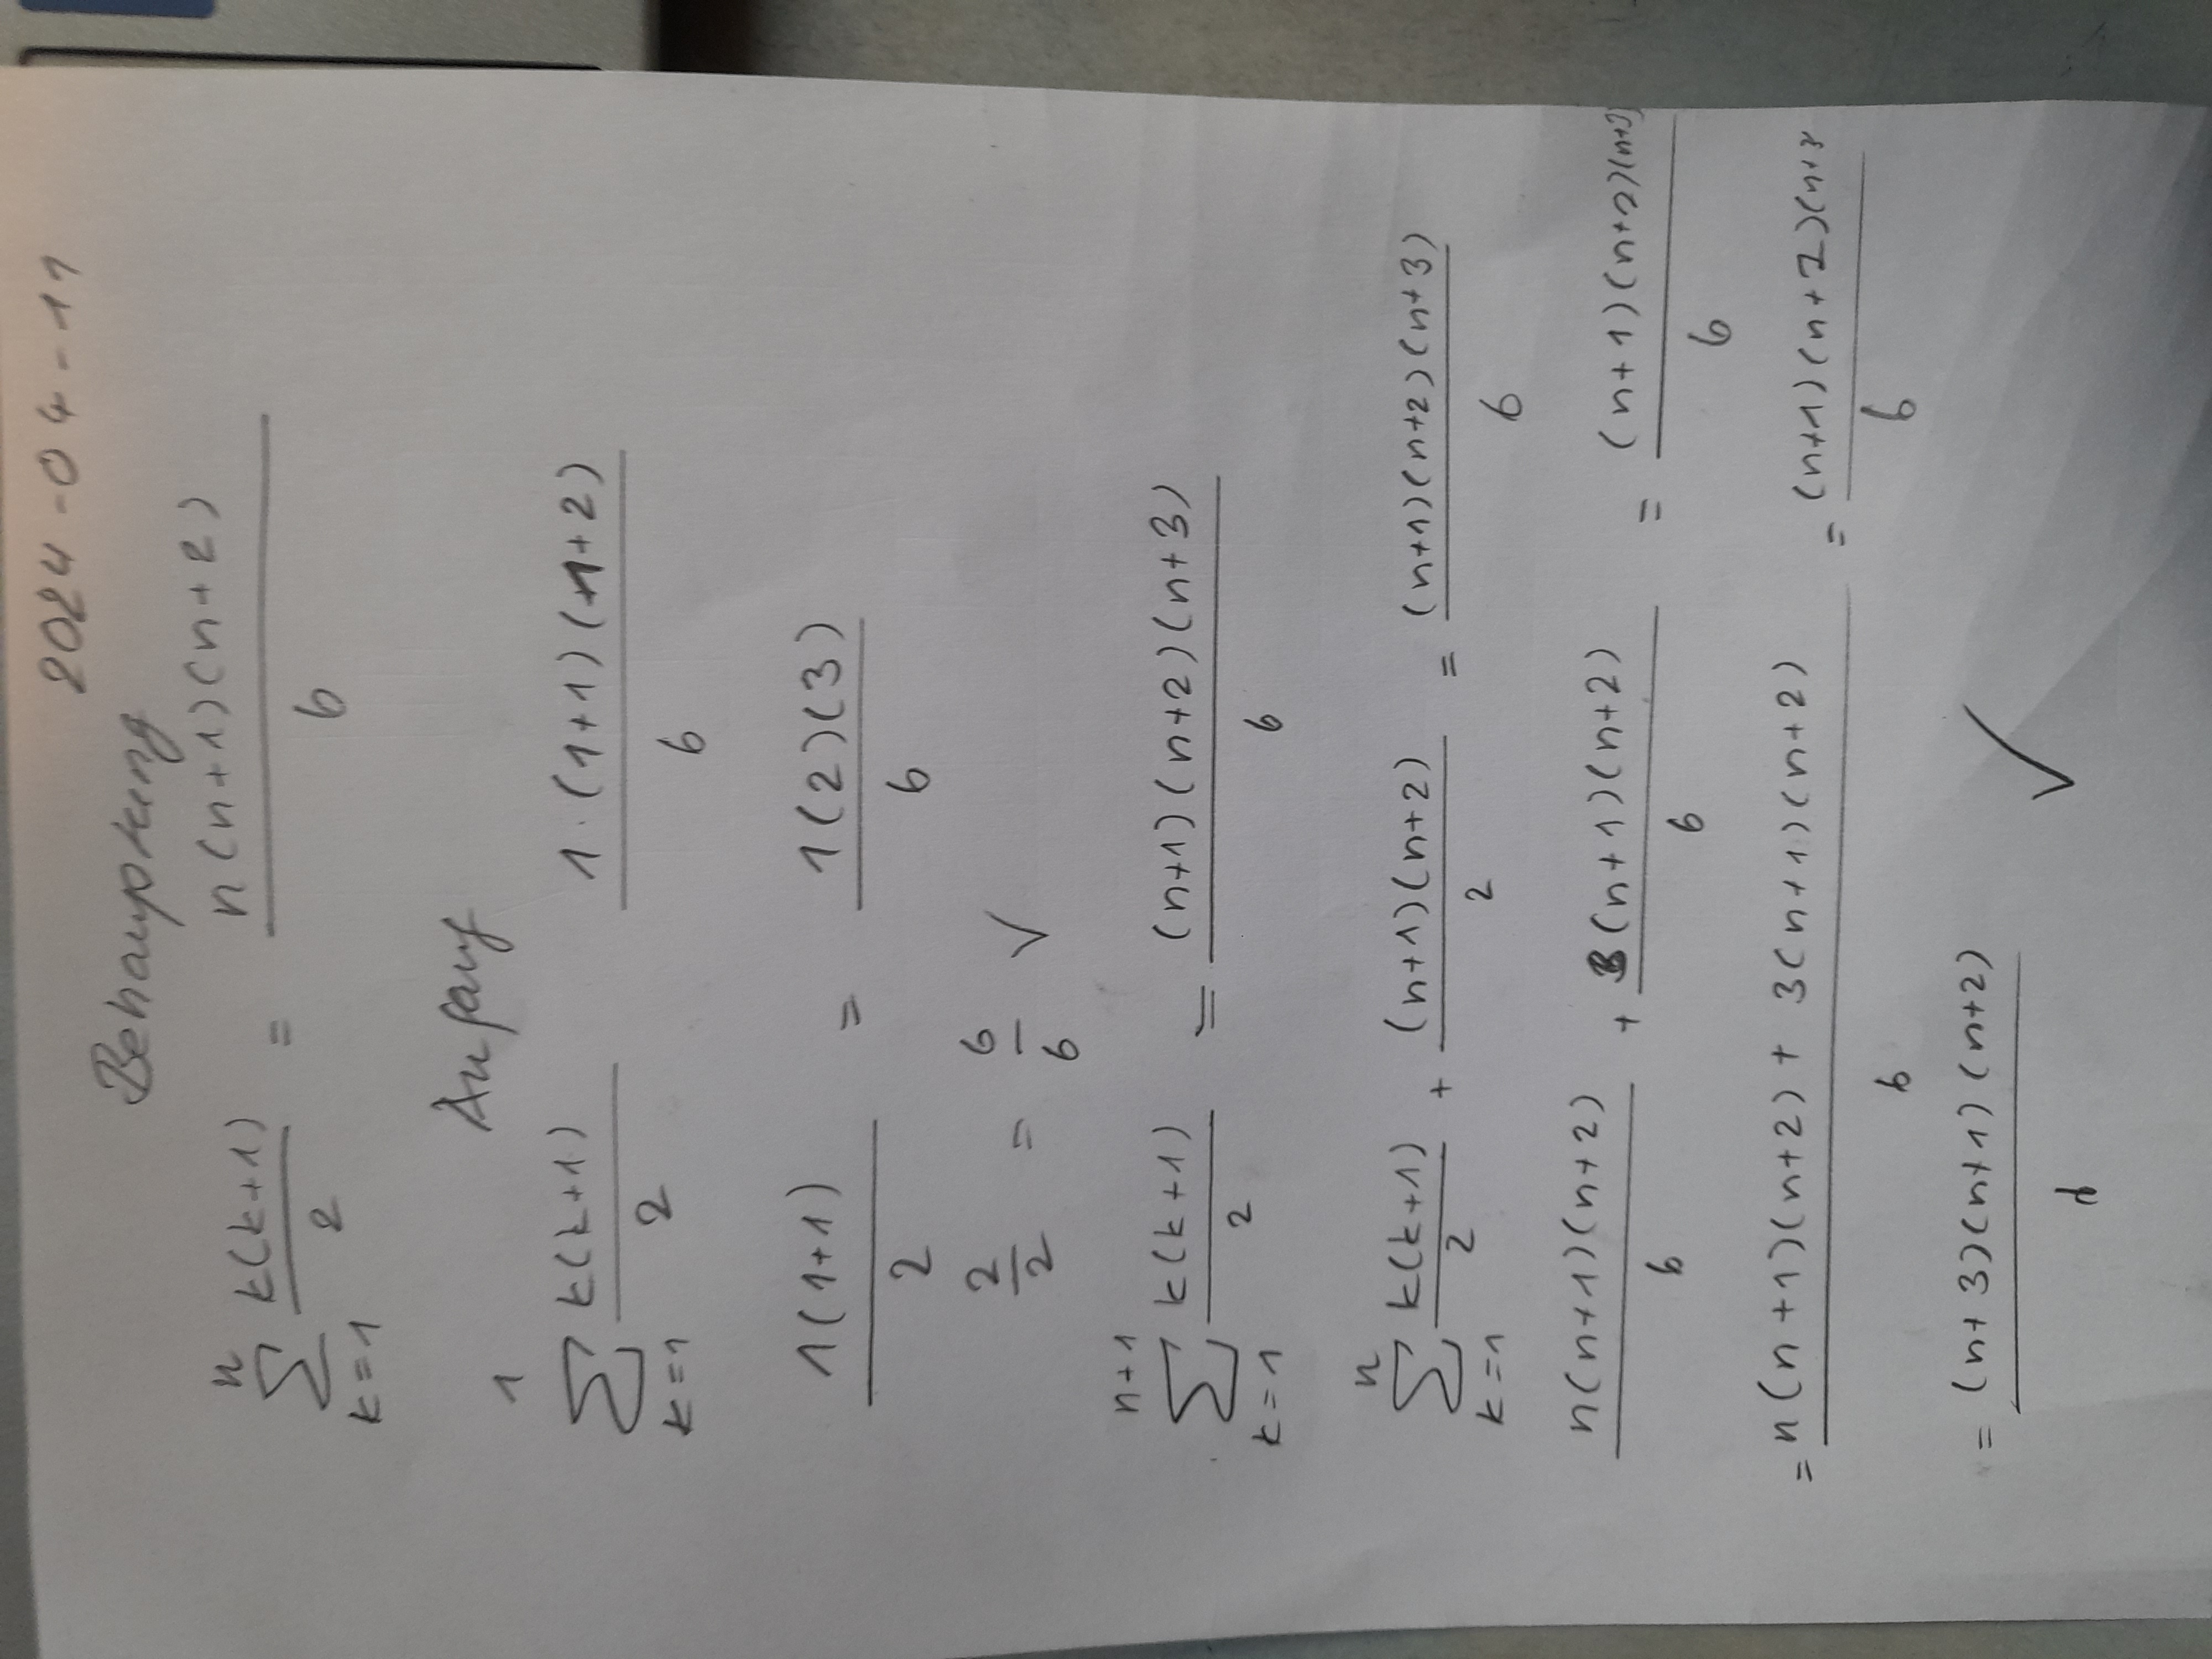 2024-04-11
Behauptung
n∑k=1 k(k+1)/2 = n(n+1)(n+2)/6
Anfang
1∑k=1 k(k+1)/2 1·(1+1)(1+2)/6
1(1+1)/2 = 1(2)(3)/6
2/2 = 6/6 √
n+1∑k=1 k(k+1)/2 = (n+1)(n+2)(n+3)/6
n∑k=1 k(k+1)/2 + (n+1)(n+2)/2 = (n+1)(n+2)(n+3)/6
n(n+1)(n+2)/6 + 3(n+1)(n+2)/6 = (n+1)(n+2)(n+3)/6
= n(n+1)(n+2) + 3(n+1)(n+2)/6 = (n+1)(n+2)(n+3/6
= (n+3)(n+1)(n+2)/6 √